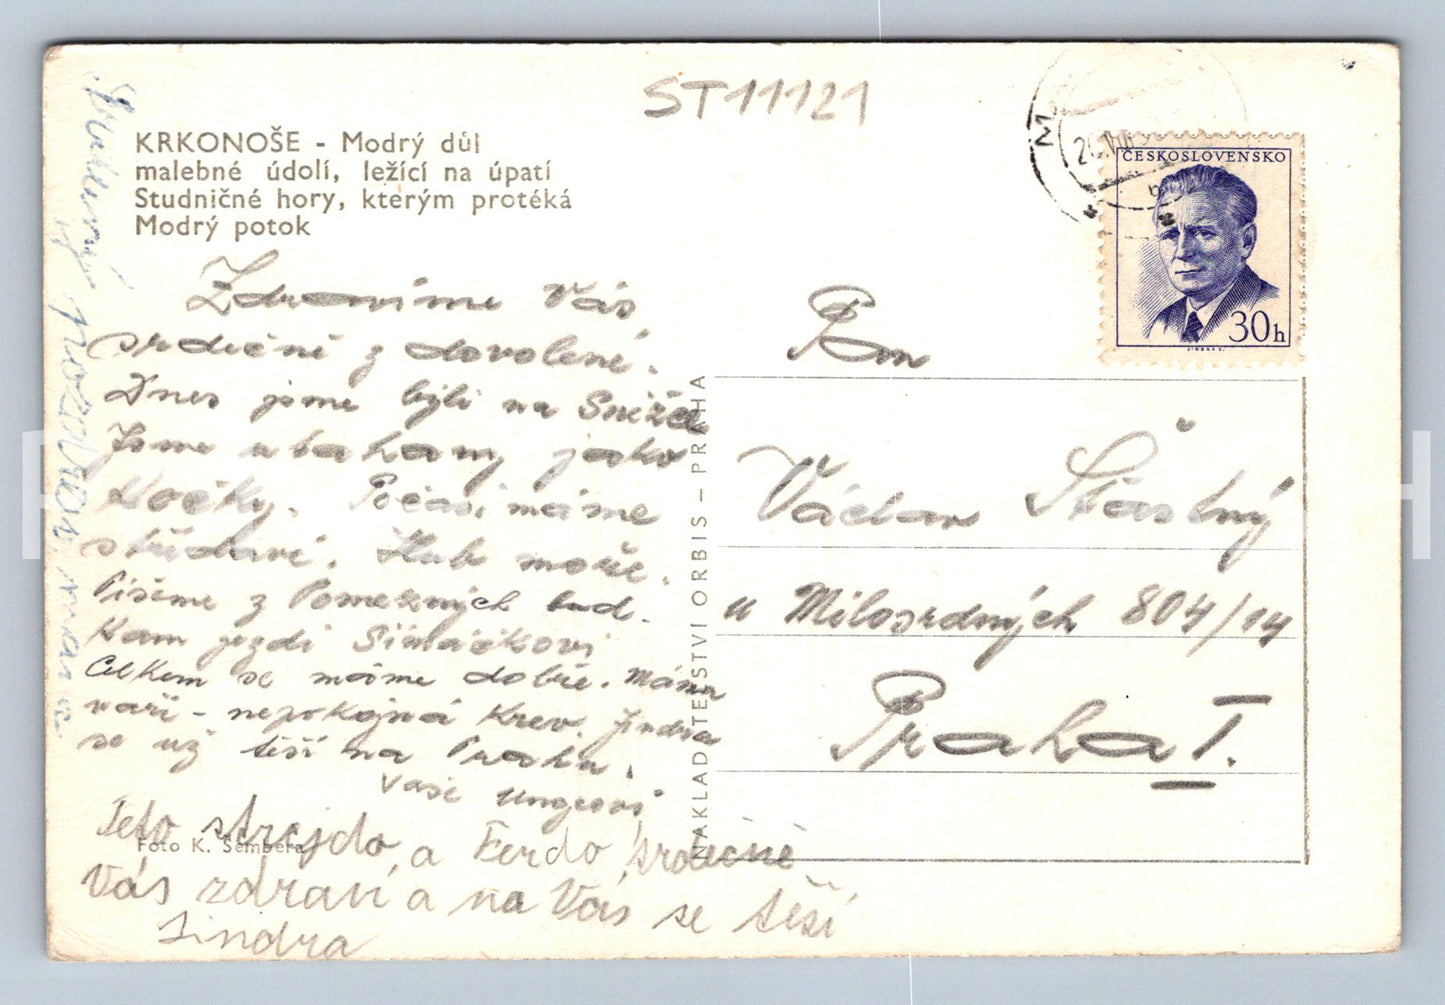 ST11121
KRKONOŠE - Modrý důl
malebné údolí, ležící na úpatí
Studničné hory, kterým protéká
Modrý potok
ČESKOSLOVENSKO
30h
Zdravíme Vás
srdečně z dovolené.
Dnes jsme byli na Sněžce
Jsme utahaný jako
kočky. Počasí máme
střídavé. Hub moře.
Píšeme z Pomezných bud.
Kam jezdí Šimáčkovi
Celkem se máme dobře. Máma
vaří - nepokojná krev. Jindra
se už těší na Prahu.
Vaši Ungrovi
Teto, strejdo, a Ferdo, srdečně
Vás zdraví a na Vás se těší
Jindra
Foto K. Šembera
NAKLADATELSTVÍ ORBIS – PRAHA
Pan
Václav Šťastný
u Milosrdných 804/14
Praha I.